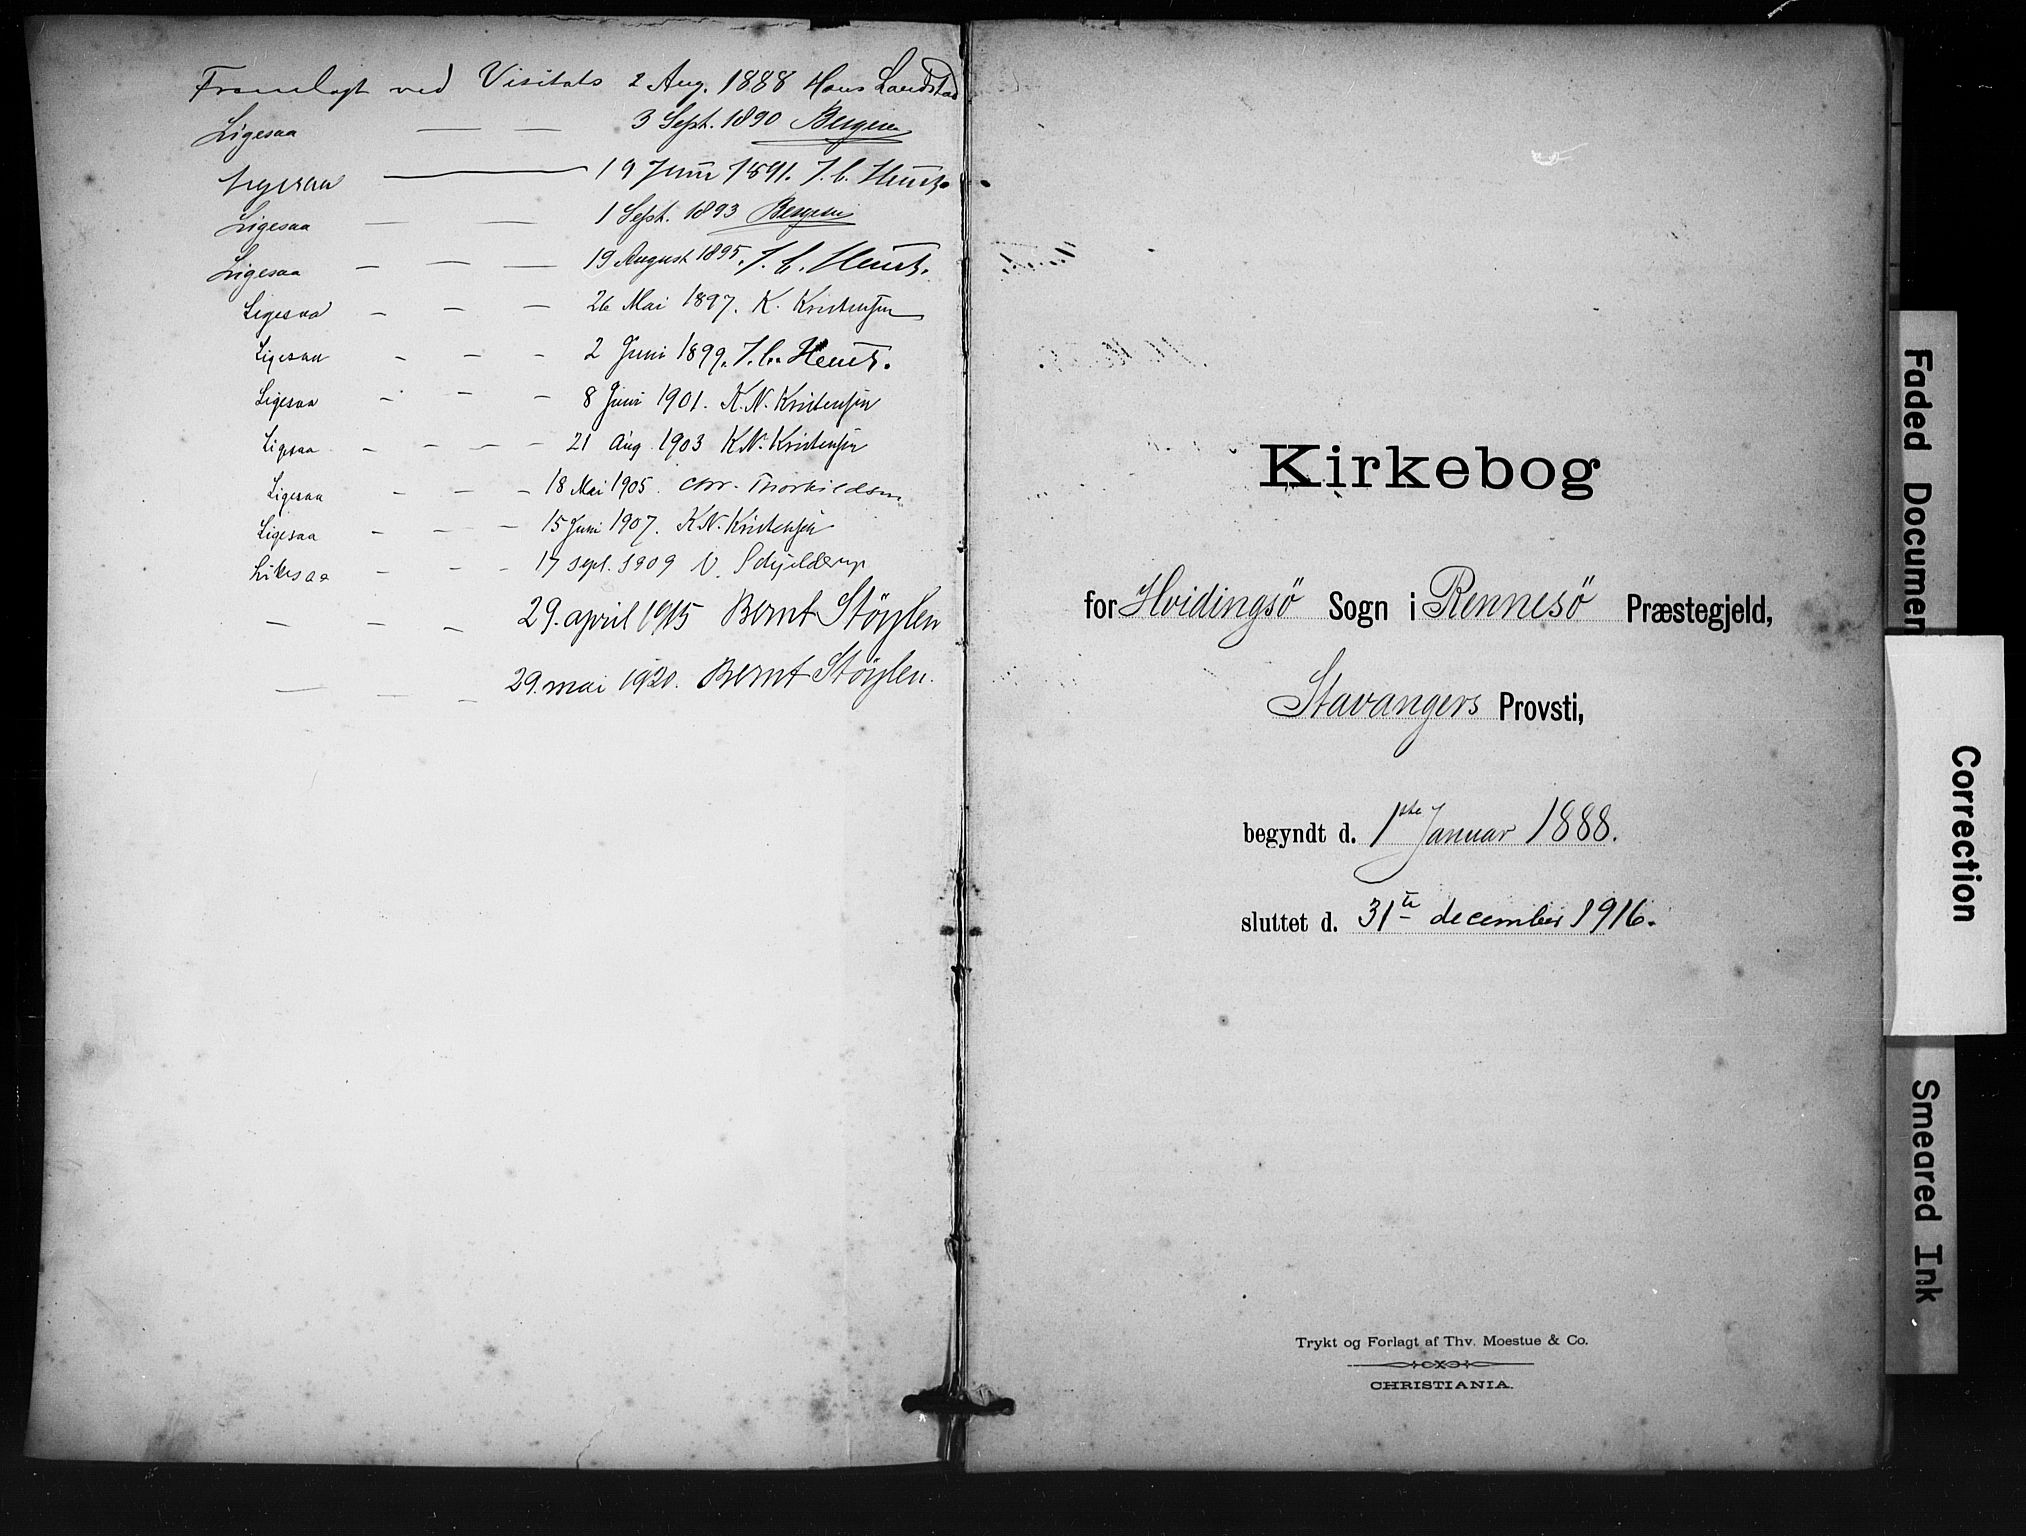 Fremlagt ved Visitats 2 Aug. 1888 Hans Landstad
Ligesaa — — 3 Sept. 1890 Bergesen
Ligesaa — 19 Juni 1891. J. C. Heuch.
Ligesaa — — — 1 Sept. 1893 Bergesen
Ligesaa — — — 19 August 1895. J. C. Heuch.
Ligesaa — — — 26 Mai 1897. K. Kristensen
Ligesaa - - - 2 Juni 1899. J. C. Heuch.
Ligesaa - - - 8 Juni 1901. K. N. Kristensen
Ligesaa - - - - 21 Aug. 1903 K. N. Kristensen
Ligesaa - - - 18 Mai 1905. Chr. Thorkildsen
Ligesaa - - - 15 Juni 1907. K. N. Kristensen
Likesaa - - - 17 sept. 1909 Schjelderup
— — — 29. april 1915 Bernt Støylen
— — — 29. mai 1920. Bernt Støylen.
Kirkebog
for Hvidingsö Sogn i Rennesö Præstegjeld,
Stavangers Provsti,
begyndt d. 1ste Januar 1888.
sluttet d. 31te december 1916.
Trykt og Forlagt af Thv. Moestue & Co.
CHRISTIANIA.
Faded Documen
Correction
Smeared Ink